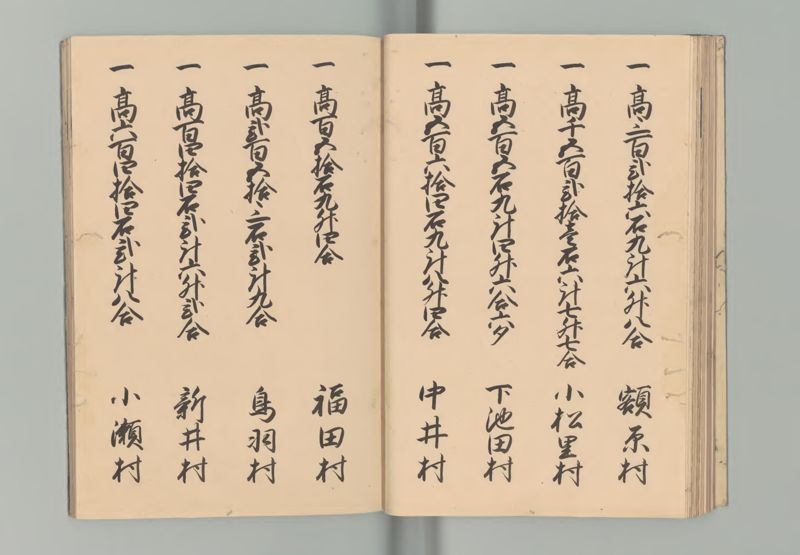 一 高三百弐拾六石九斗六升八合 額原村
一 高千五百弐拾壱石六斗七升七合 小松里村
一 高五百五石九斗四升六合六夕 下池田村
一 高五百六拾四石九斗八升四合 中井村
一 高百五拾石九升四合 福田村
一 高弐百五拾三石弐斗九合 鳥羽村
一 高百四拾四石弐斗六升弐合 新井村
一 高六百四拾四石弐斗八合 小瀬村